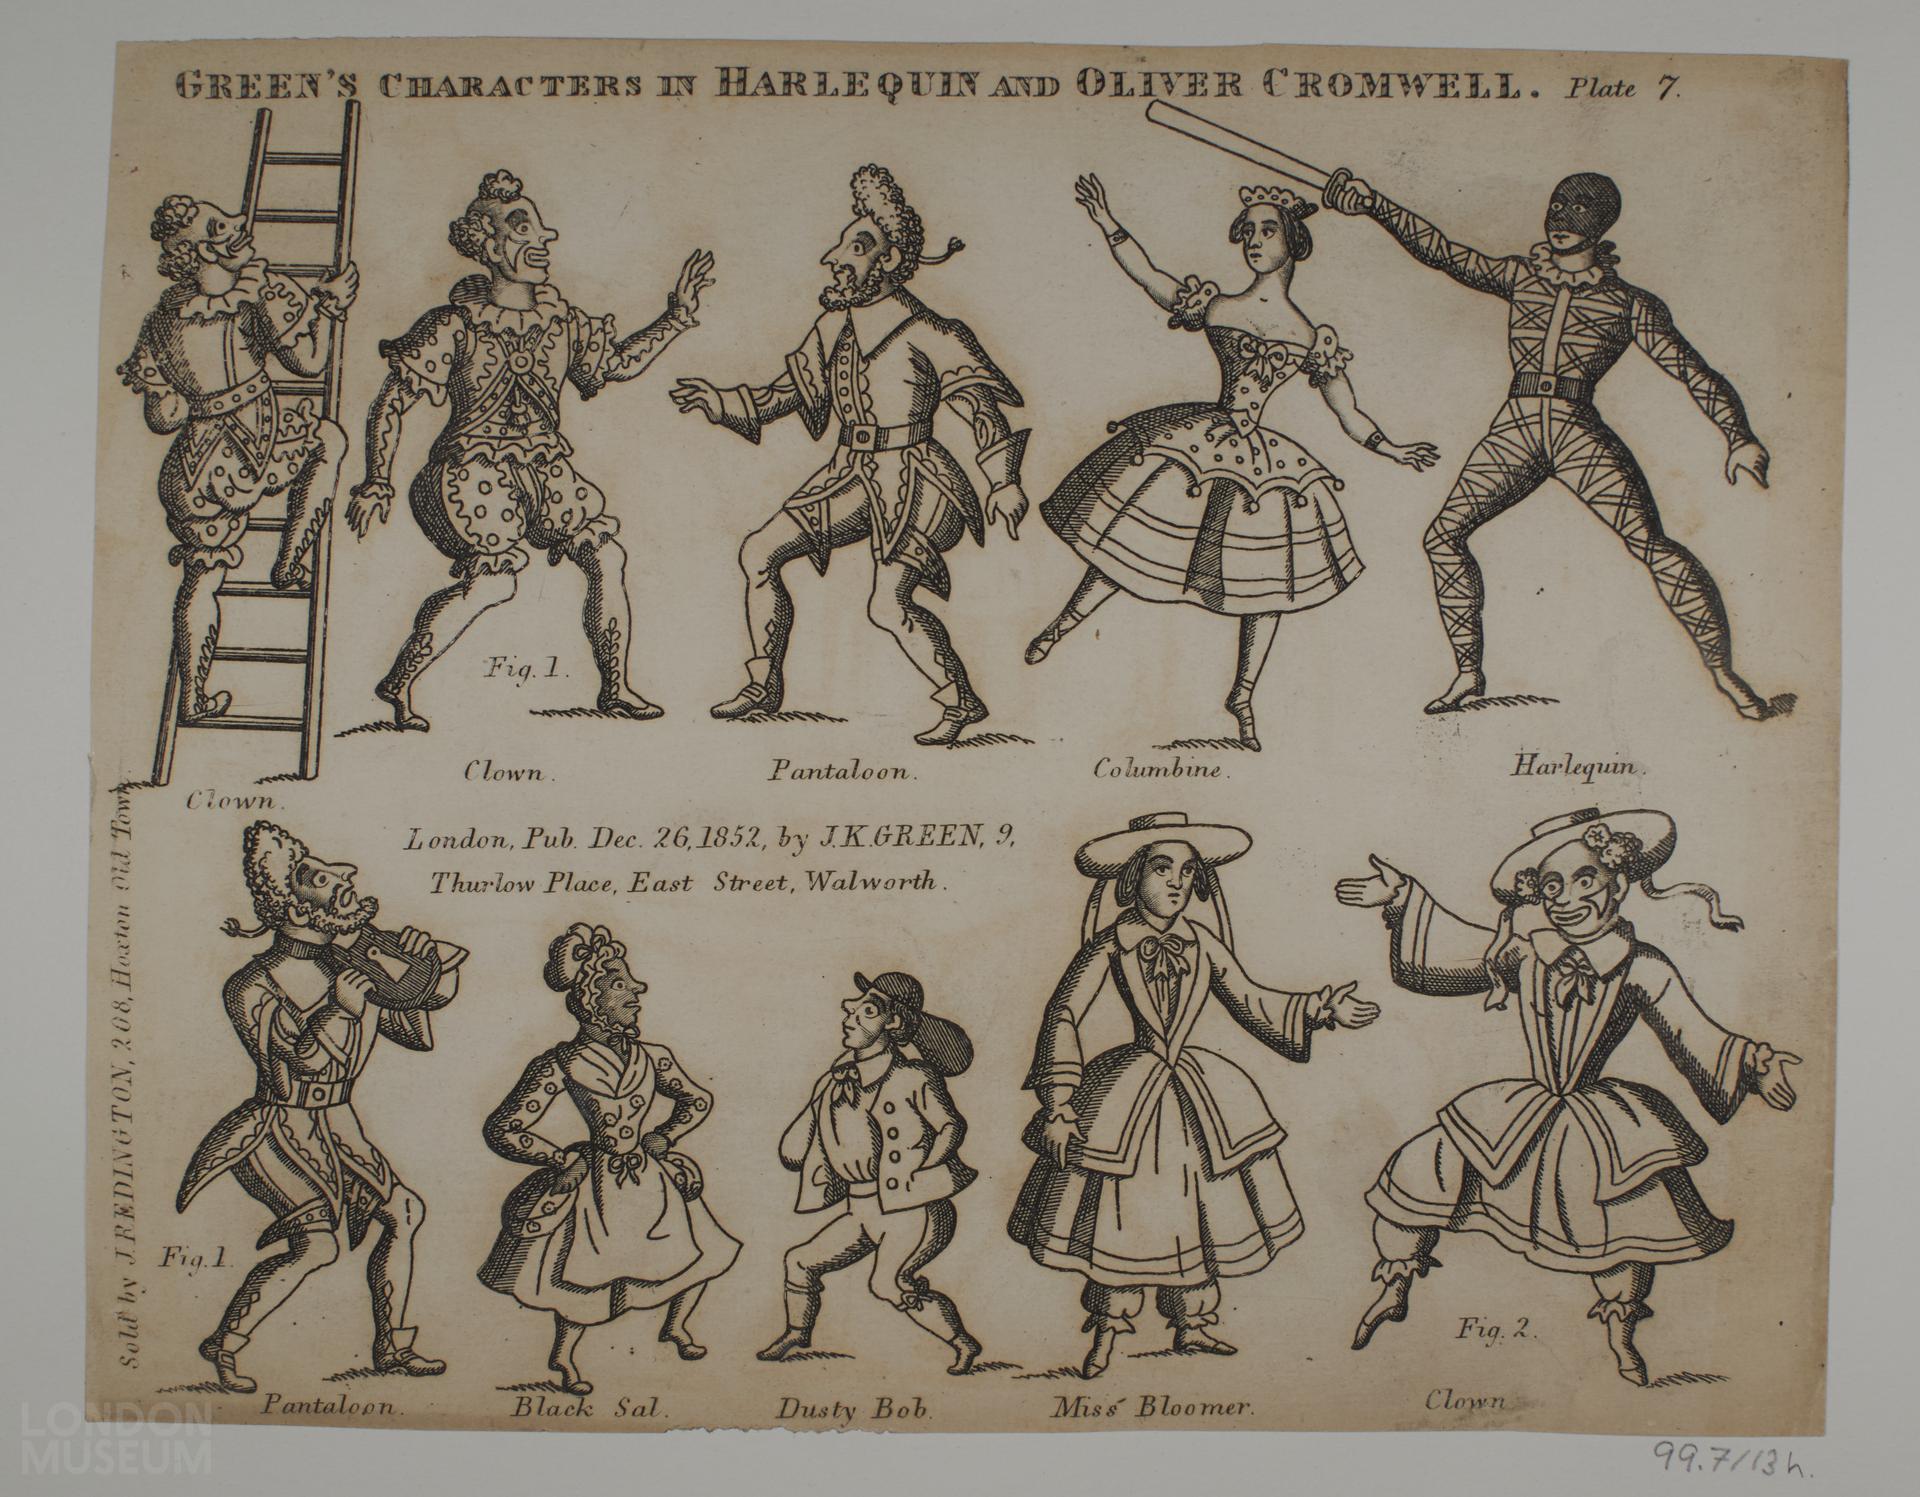 GREEN'S CHARACTERS IN HARLEQUIN AND OLIVER CROMWELL. Plate 7.
Fig. 1.
Clown.
Clown.
Pantaloon.
Columbine.
Harlequin.
London, Pub. Dec. 26, 1852, by J.K. GREEN, 9,
Thurlow Place, East Street, Walworth.
Sold by J. REDINGTON, 208, Hoxton Old Town.
Fig. 1.
Fig. 2.
Pantaloon.
Black Sal.
Dusty Bob.
Miss Bloomer.
Clown
LONDON
MUSEUM
99.7/13h.